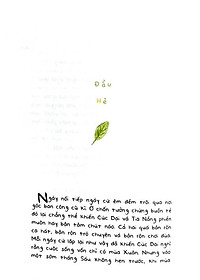 Đầu
Hè
Ngày nối tiếp ngày cứ êm đềm trôi qua nơi
góc ban công cũ kĩ. Ở chốn tưởng chừng buồn tẻ
đó lại chẳng thể khiến Cúc Dại và Tạ Nồng phiền
muộn hay bận tâm chút nào. Cả hai bận rộn
ca hát, bận rộn trò chuyện và bận rộn chơi đùa.
Mỗi ngày cứ lặp lại như vậy đã khiến Cúc Dại nghĩ
rằng cuộc sống vốn chỉ có mùa Xuân. Nhưng vào
một sớm tháng Sáu không hẹn trước, khi mà